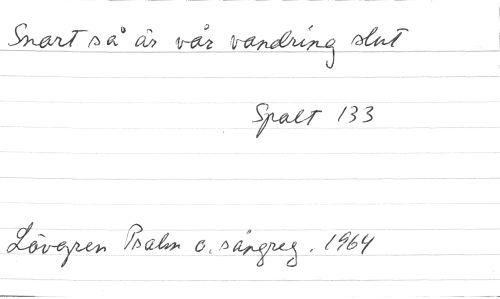 Snart så är vår vandring slut
Spalt 133
Lövgren Psalm o. sångreg. 1964